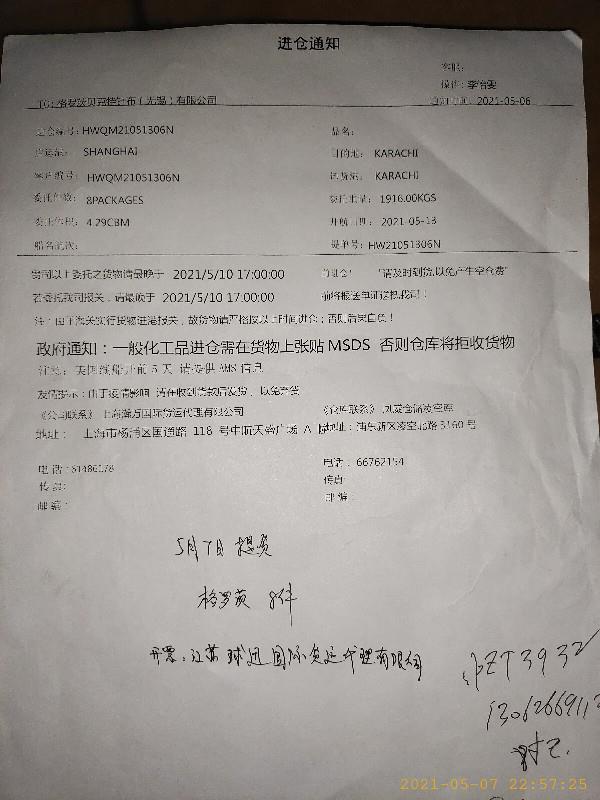 进仓通知
客服:
操作: 李怡雯
TO: 格罗茨贝克特针布（无锡）有限公司
日期: 2021-05-06
进仓编号: HWQM21051306N
品名:
SHANGHAI
目的地: KARACHI
HWQM21051306N
KARACHI
委托件数: 8PACKAGES
委托重量: 1916.00KGS
委托体积: 4.29CBM
开航日期: 2021-05-13
船名航次:
提单号: HW21051306N
贵司以上委托之货物请最晚于 2021/5/10 17:00:00 前进仓! "请及时到货,以免产生空仓费"
若委托我司报关，请最晚于 2021/5/10 17:00:00 前将报送单证送我司!
注：由于海关实行货物进港报关，故货物请严格按以上时间进仓；否则后果自负!
政府通知：一般化工品进仓需在货物上张贴 MSDS 否则仓库将拒收货物
注意：美国线船开前 5 天 请提供 AMS 信息
友情提示：由于疫情影响 请在收到货款后发货，以免产生
《公司联系》上海瀚万国际货运代理有限公司
《仓库联系》
地址： 上海市杨浦区国通路 118 号中航天盛广场 A
地址： 浦东新区凌空北路 3160 号
电话: 61486178
电话： 66762154
传真:
传真:
邮编:
邮编:
5月7日 提货
格罗茨 8件
开票: 江苏球迅国际货运代理有限公司
沪ZT3932
1306266911